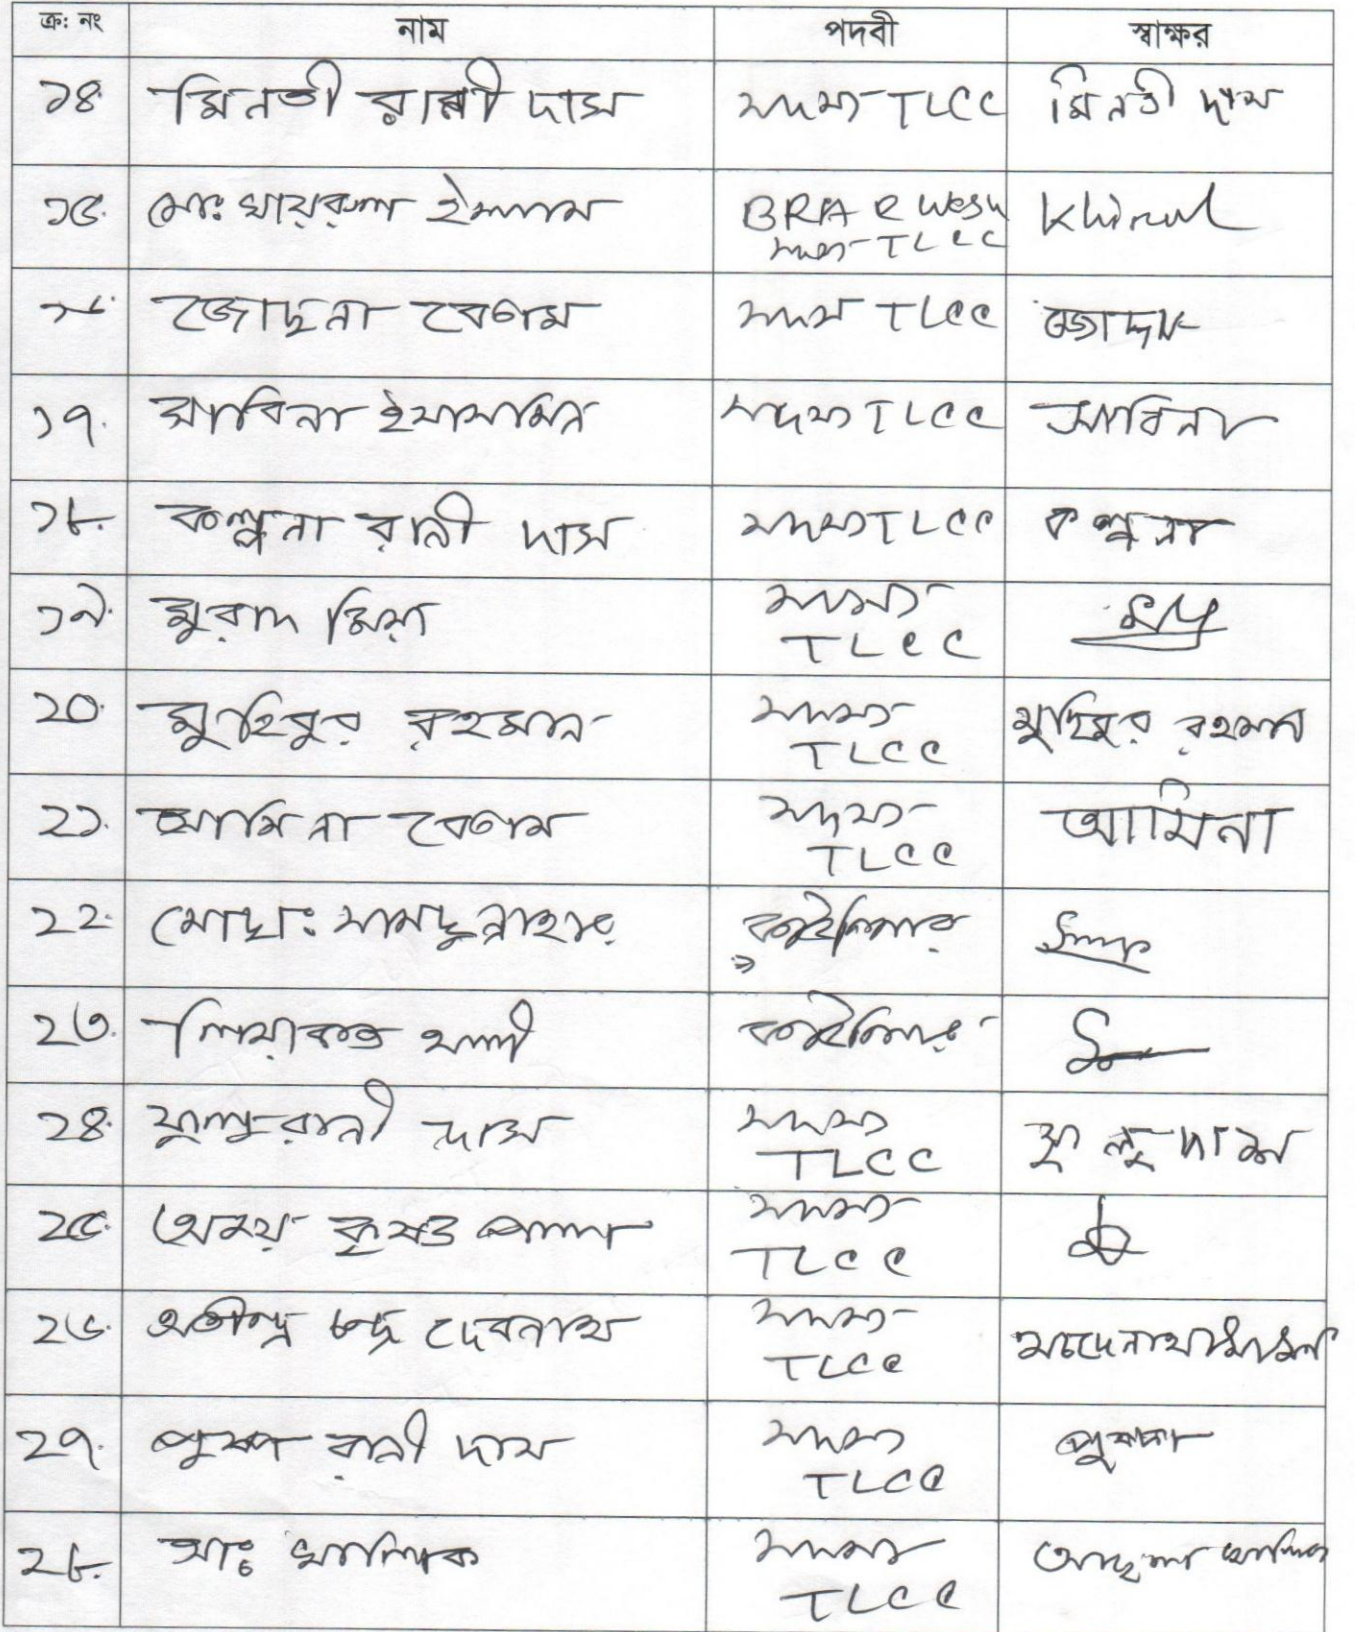 ক্র: নং নাম পদবী স্বাক্ষর
১৪. মিনতী রানী দাস সদস্য TLCC মিনতী দাস
১৫. মোঃ খায়রুল ইসলাম BRAC WASH Khirul
সদস্য TLCC
১৬. জোছনা বেগম সদস্য TLCC জোছনা
১৭. সাবিনা ইয়াসমিন সদস্য TLCC সাবিনা
১৮. কল্পনা রানী দাস সদস্য TLCC কল্পনা
১৯. মুরাদ মিয়া সদস্য
TLCC
২০. মুহিবুর রহমান সদস্য মুহিবুর রহমান
TLCC
২১. আমিনা বেগম সদস্য আমিনা
TLCC
২২. মোছাঃ সামছুন্নাহার কাউন্সিলর
২৩. লিয়াকত আলী কাউন্সিলর
২৪. ফুলু রানী দাস সদস্য ফুলু দাস
TLCC
২৫. অময় কৃষ্ণ পাল সদস্য
TLCC
২৬. চন্দ্র দেবনাথ সদস্য
TLCC
২৭. পুষ্প রানী দাস সদস্য পুষ্পা
TLCC
২৮. আঃ খালিক সদস্য খালিক
TLCC